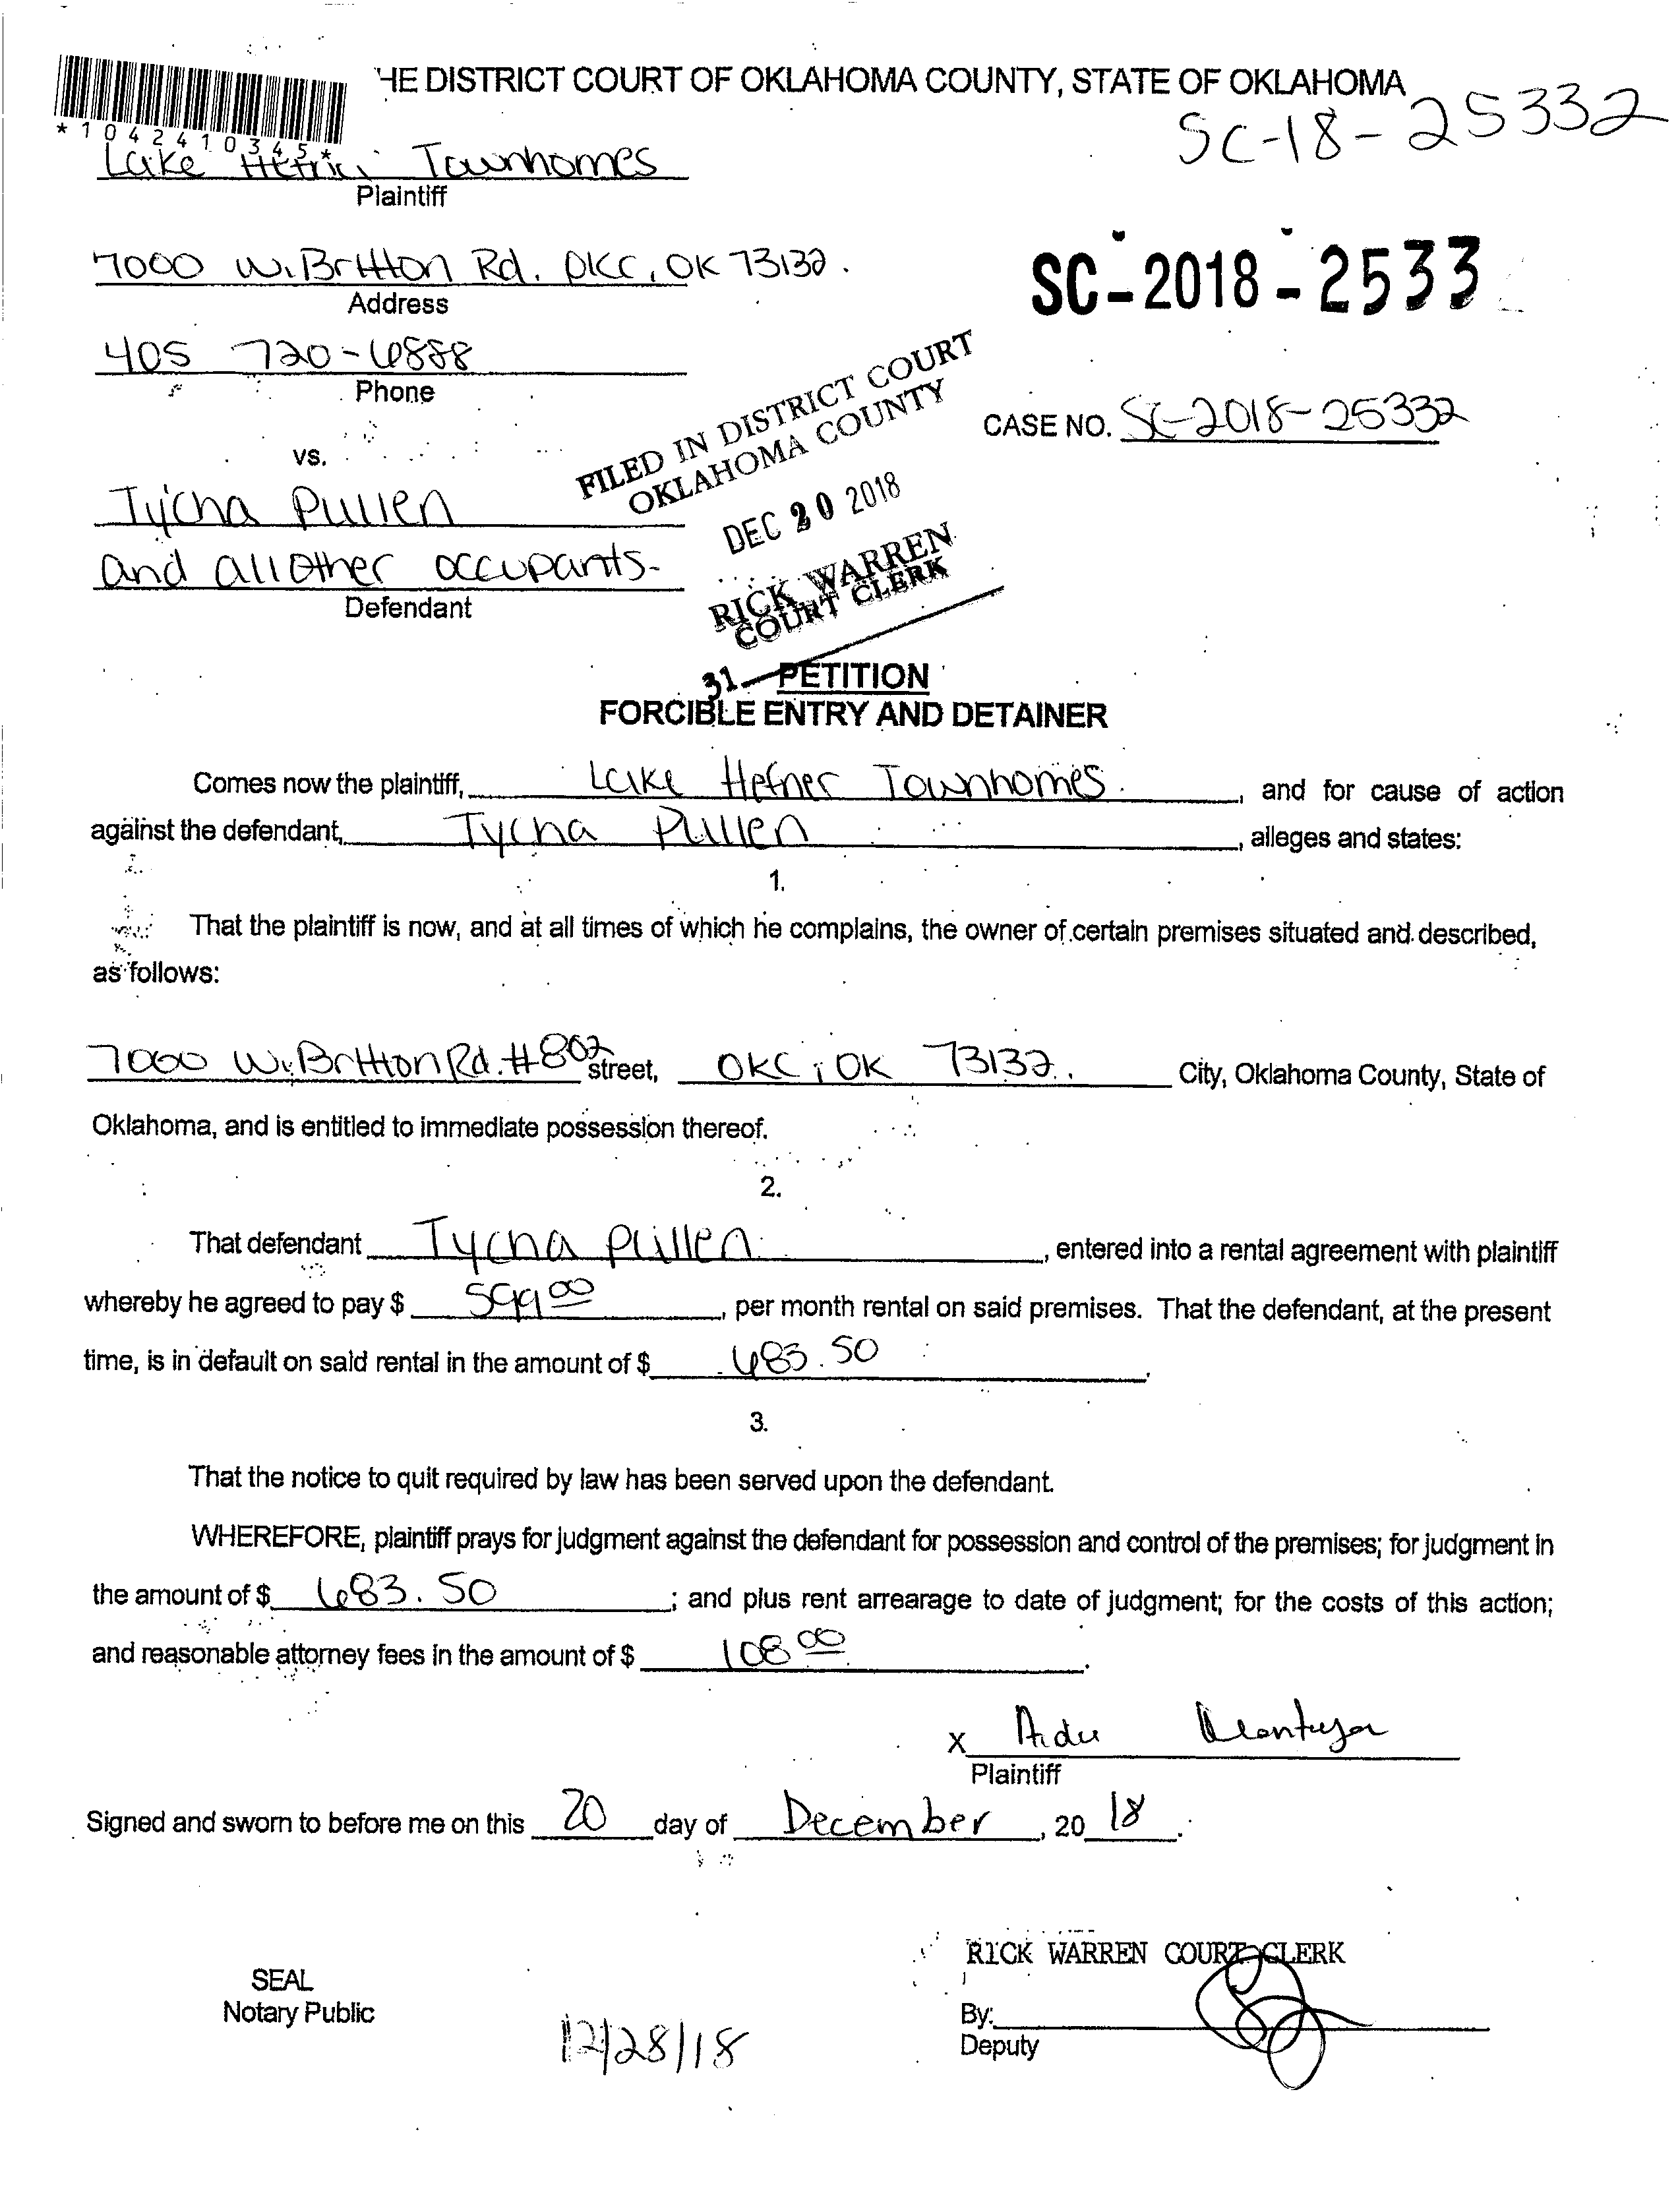 HE DISTRICT COURT OF OKLAHOMA COUNTY, STATE OF OKLAHOMA
*1042410345*
SC-18-25332
Lake Hefner Townhomes
Plaintiff
7000 W. Britton Rd. OKC, OK 73132.
Address
SC-2018-2533
405 720-6888
Phone
CASE NO. SC-2018-25332
vs.
FILED IN DISTRICT COURT
OKLAHOMA COUNTY
DEC 20 2018
RICK WARREN
COURT CLERK
31
Tycha Pullen
and all other occupants.
Defendant
PETITION
FORCIBLE ENTRY AND DETAINER
Comes now the plaintiff, Lake Hefner Townhomes, and for cause of action
against the defendant, Tycha Pullen, alleges and states:
1.
That the plaintiff is now, and at all times of which he complains, the owner of certain premises situated and described,
as follows:
7000 W. Britton Rd. #802 street, OKC, OK 73132. City, Oklahoma County, State of
Oklahoma, and is entitled to immediate possession thereof.
2.
That defendant Tycha Pullen, entered into a rental agreement with plaintiff
whereby he agreed to pay $ 599.00, per month rental on said premises. That the defendant, at the present
time, is in default on said rental in the amount of $ 683.50.
3.
That the notice to quit required by law has been served upon the defendant.
WHEREFORE, plaintiff prays for judgment against the defendant for possession and control of the premises; for judgment in
the amount of $ 683.50; and plus rent arrearage to date of judgment; for the costs of this action;
and reasonable attorney fees in the amount of $ 108.00.
x
Plaintiff
Signed and sworn to before me on this 20 day of December, 20 18.
RICK WARREN COURT CLERK
SEAL
Notary Public
By:
Deputy
12/28/18